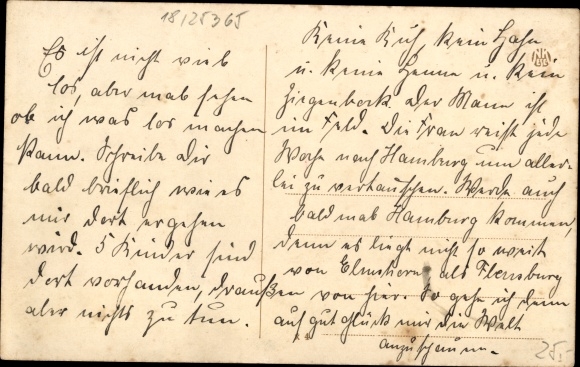 18/25365
Es ist nicht viel
los, aber mal sehen
ob ich was los machen
kann. Schreibe Dir
bald brieflich wie es
mir dort ergehen
wird. 5 Kinder sind
dort vorhanden, draußen
aber nichts zu tun.
Keine Kuh, kein Hahn
u. keine Henne u. kein
Ziegenbock. Der Mann ist
im Feld. Die Frau reist jede
Woche nach Hamburg um aller-
lei zu vertauschen. Werde auch
bald mal Hamburg kommen,
denn es liegt nicht so weit
von Elmshorn als Flensburg
von hier. So gehe ich denn
auf gut Glück mir die Welt
anzuschauen.
25,-